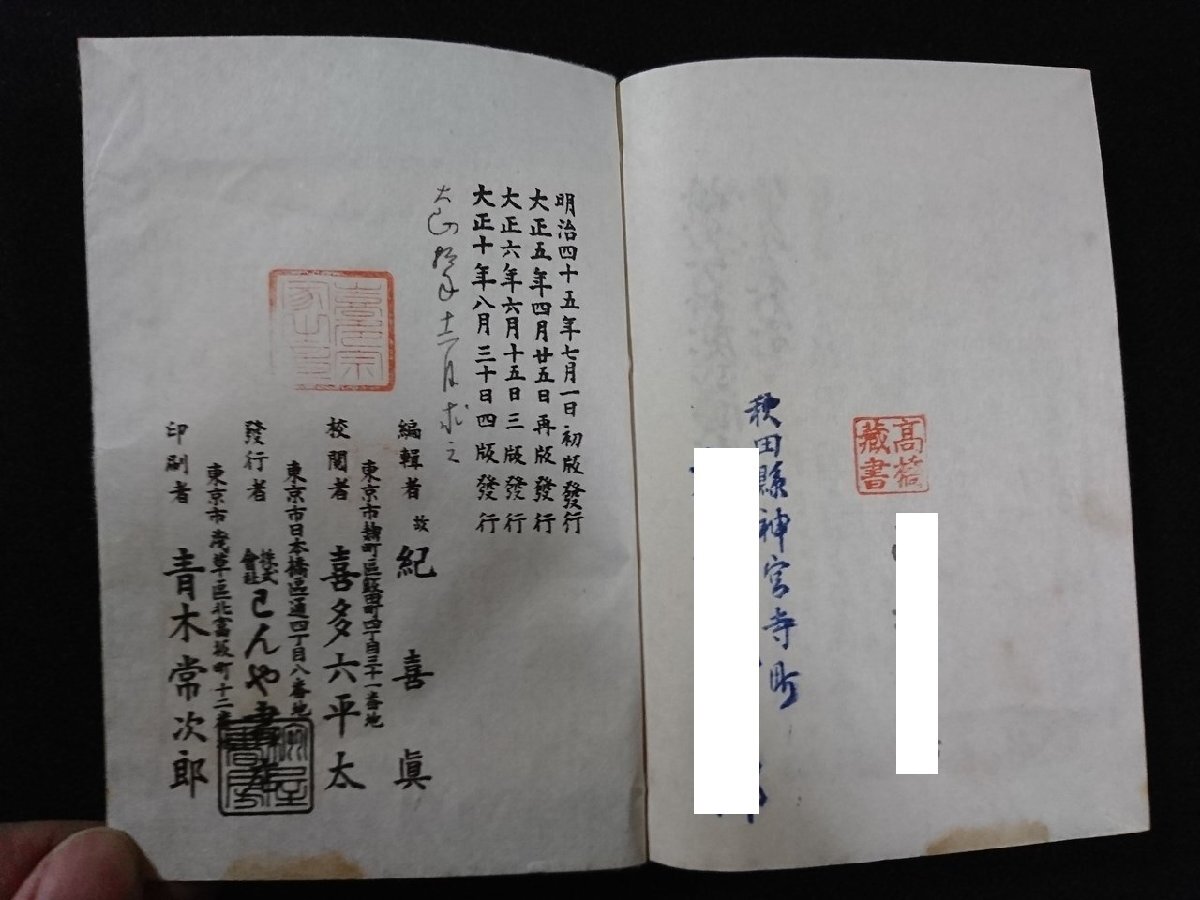 高橋
藏書
秋田縣神宮寺町
明治四十五年七月一日初版發行
大正五年四月廿五日再版發行
大正六年六月十五日三版發行
大正十年八月三十日四版發行
十二月求之
編輯者 故 紀喜眞
東京市麹町區飯田町四丁目三十一番地
校閲者 喜多六平太
東京市日本橋區通四丁目八番地
發行者 株式會社 わんや書店
東京市淺草區北富坂町十二番
印刷者 青木常次郎